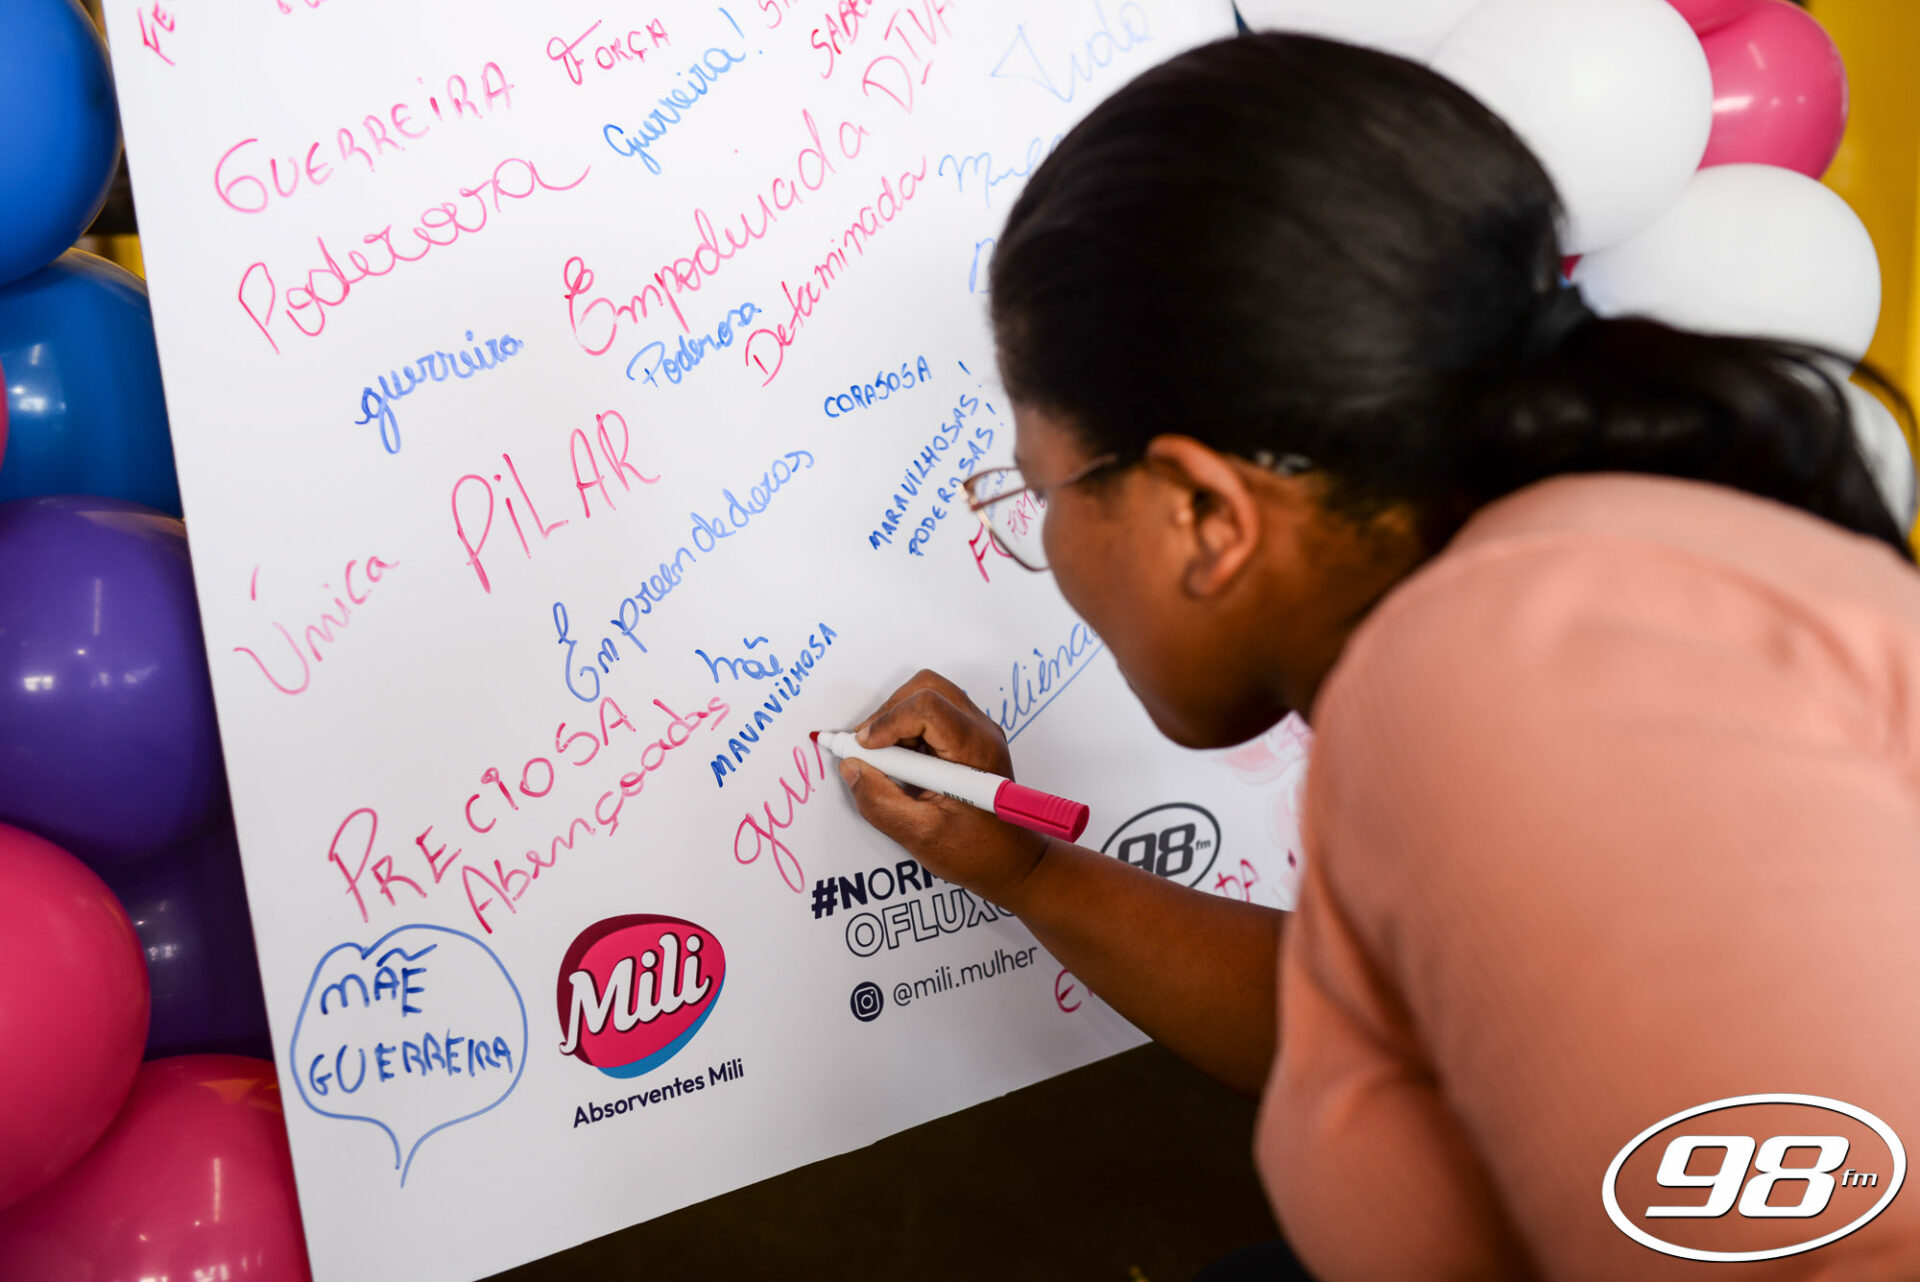 GUERREIRA
FORÇA
Guerreira!
DIVA
Tudo
Poderosa
Empoderada
Determinada
guerreira
Poderosa
CORAJOSA!
MARAVILHOSAS!
PODEROSAS!
PILAR
Única
Empreendedoras
Mãe
MARAVILHOSA
PRECIOSA
Abençoadas
gue
MÃE
GUERREIRA
Mili
Absorventes Mili
OFLUXO
@mili.mulher
98 fm
98 fm